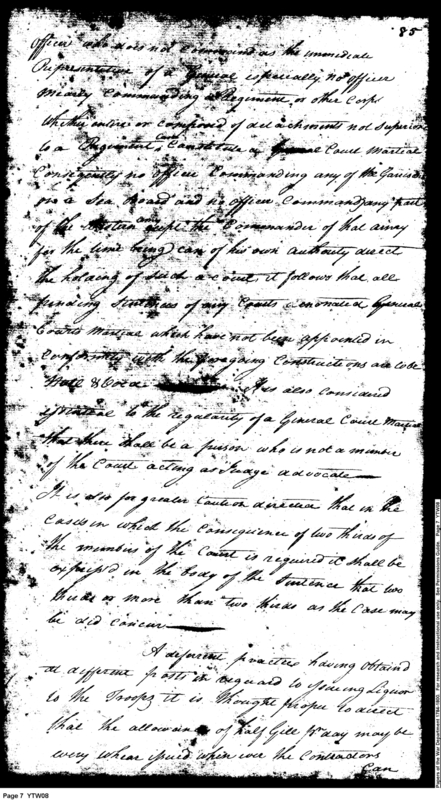 85
officer who does not command as the immediate
Representative of a General especially no officer
mearly commanding a Regiment, or other Corps
whether entire or composed of detachments not superior
to a Regiment can Constitute a General Court Martial
Consequently no officer Commanding any of the Garrisons
on a Sea Board and no officer Command any part
of the army except the Commander of that army
for the time being can of his own authority direct
the holding of such a court, it follows that all
pending Sentences of any Courts denominated General
Courts Martial which have not been appointed in
Conformity with the foregoing Constructions are to be
Null & Void It is also considered
essential to the regularity of a General Court Martial
that there shall be a person who is not a member
of the Court acting as Judge advocate
It is also for greater Caution directed that in the
Cases in which the Concurrence of two thirds of
the members of the Court is required it shall be
expressed in the body of the Sentence that two
thirds or more than two thirds as the Case may
be did concur
A different practice having obtained
at different posts in reguard to issuing Liquor
to the Troops it is thought proper to direct
that the allowance of half Gill pr day may be
every where issued when ever the Contractors
Can
Page 7 YTW08